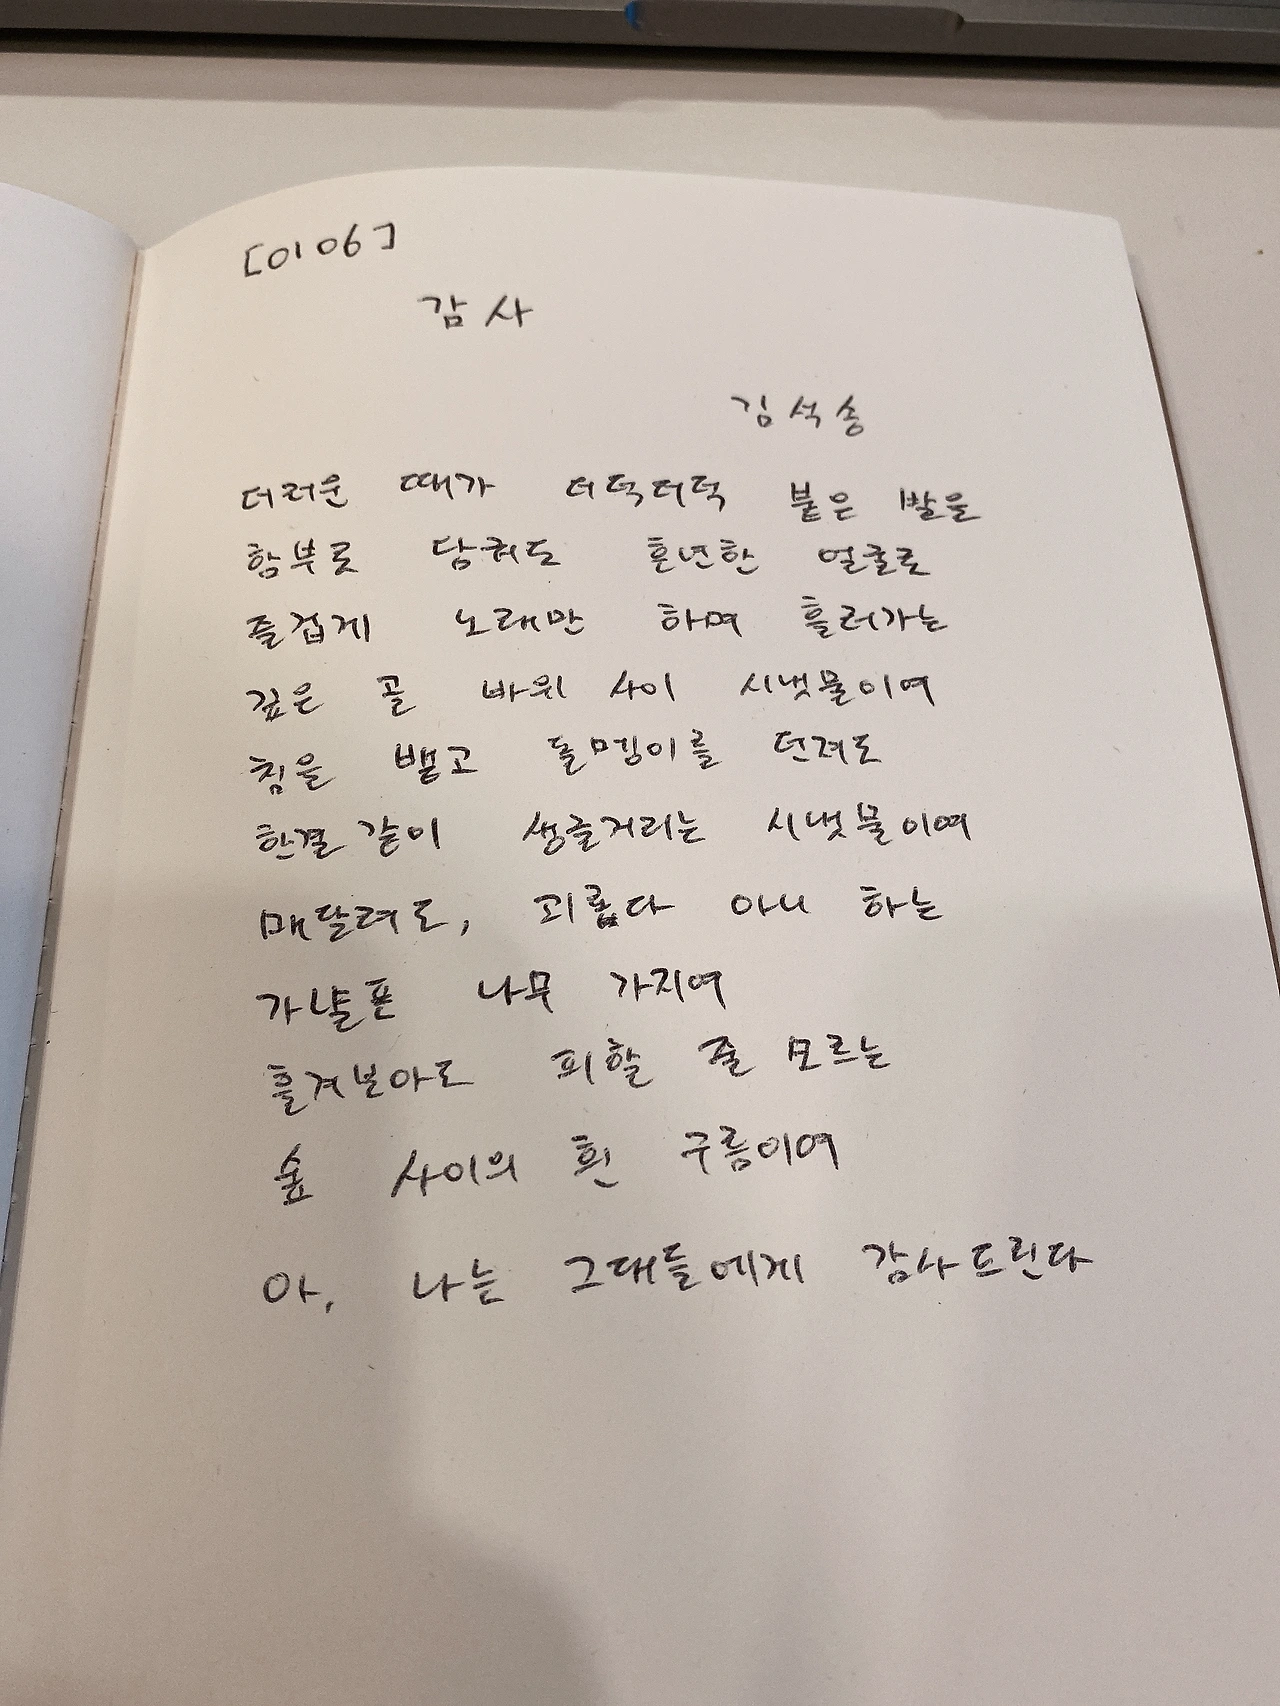 [0106]
감사
김석송
더러운 때가 더덕더덕 붙은 발을
함부로 담궈도 흔연한 얼굴로
즐겁게 노래만 하며 흘러가는
깊은 골 바위 사이 시냇물이여
침을 뱉고 돌멩이를 던져도
한결같이 생글거리는 시냇물이여
매달려도, 괴롭다 아니 하는
가냘픈 나무 가지여
흘겨보아도 피할 줄 모르는
숲 사이의 흰 구름이여
아, 나는 그대들에게 감사드린다